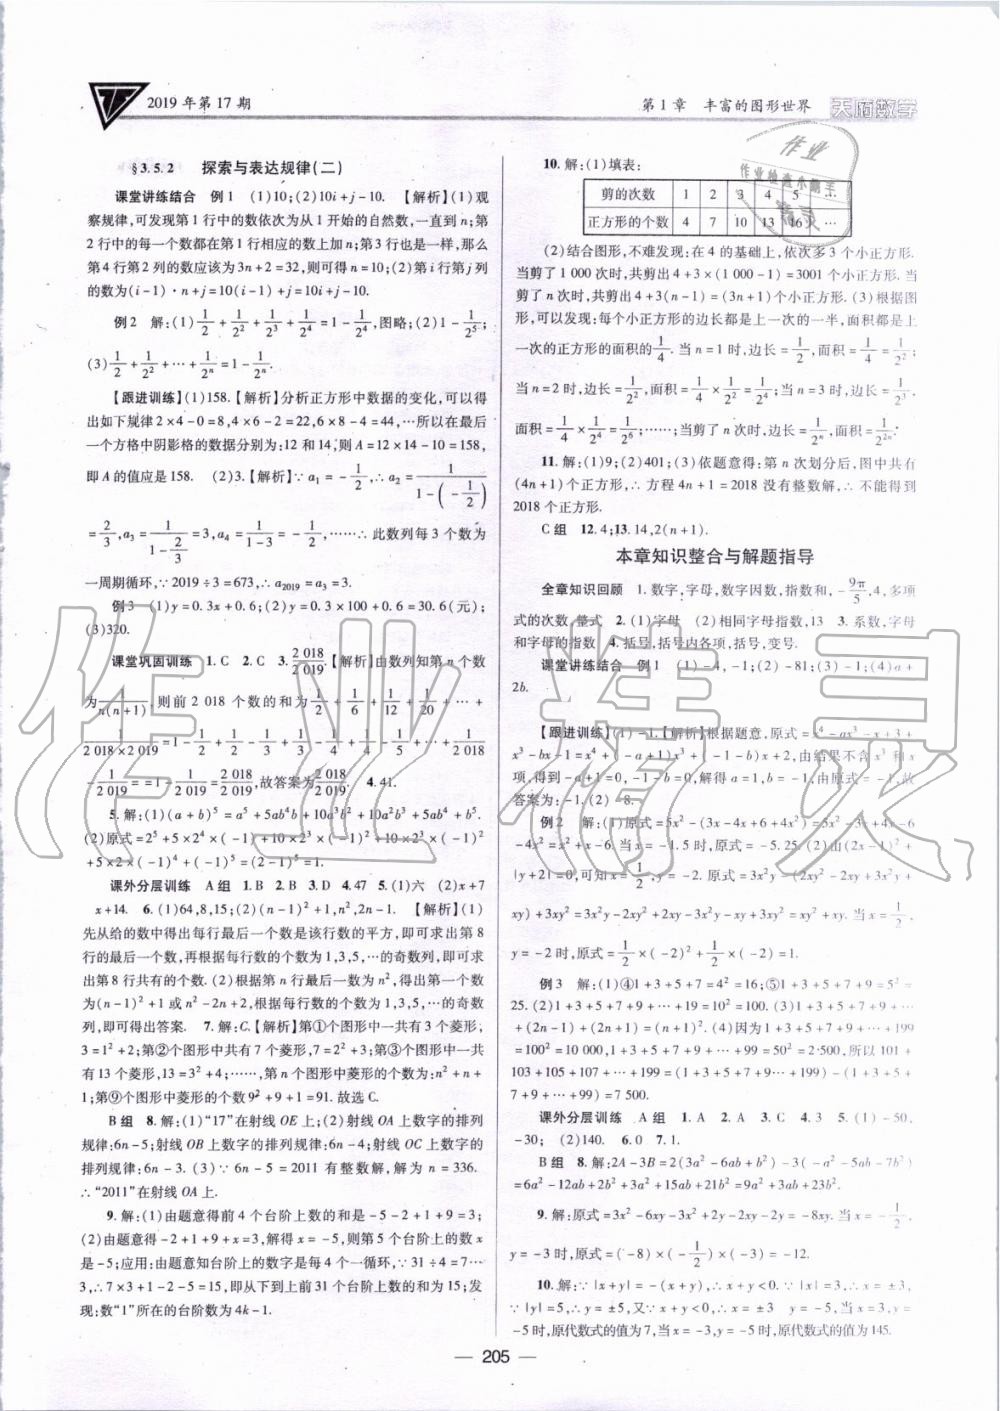 2019 年第 17 期
第 1 章 丰富的图形世界 天府数学
§3.5.2 探索与表达规律(二)
课堂讲练结合 例 1 (1)10;(2)10i+j-10. 【解析】(1)观
察规律,可发现第 1 行中的数依次为从 1 开始的自然数,一直到 n;第
2 行中的每一个数都在第 1 行相应的数上加 n;第 3 行也是一样,那么
第 4 行第 2 列的数应该为 3n+2=32,则可得 n=10;(2)第 i 行第 j 列
的数为(i-1)·n+j=10(i-1)+j=10i+j-10.
例 2 解:(1) 1/2 + 1/2² + 1/2³ + 1/2⁴ = 1 - 1/2⁴,图略;(2)1 - 1/2⁵;
(3) 1/2 + 1/2² + ⋯ + 1/2ⁿ = 1 - 1/2ⁿ.
【跟进训练】(1)158.【解析】分析正方形中数据的变化,可以得
出如下规律 2×4-0=8,4×6-2=22,6×8-4=44,⋯所以在最后
一个方格中阴影格的数据分别为:12 和 14,则 A=12×14-10=158,
即 A 的值应是 158. (2)3.【解析】∵a₁ = -1/2,∴a₂ = 1/(1-(-1/2))
= 2/3,a₃ = 1/(1-2/3) = 3,a₄ = 1/(1-3) = -1/2,⋯⋯∴此数列每 3 个数为
一周期循环,∵2019÷3=673,∴a₂₀₁₉=a₃=3.
例 3 (1)y=0.3x+0.6;(2)y=0.3×100+0.6=30.6(元);
(3)320.
课堂巩固训练 1. C 2. C 3. 2 018/2 019.【解析】由数列知第 n 个数
为 1/n(n+1),则前 2 018 个数的和为 1/2 + 1/6 + 1/12 + 1/20 + ⋯ +
1/(2 018×2 019) = 1 - 1/2 + 1/2 - 1/3 + 1/3 - 1/4 + 1/4 - 1/5 + ⋯ + 1/2 018
- 1/2 019 = = 1 - 1/2 019 = 2 018/2 019,故答案为 2 018/2 019. 4. 41.
5. 解:(1)(a+b)⁵=a⁵+5a⁴b+10a³b²+10a²b³+5ab⁴+b⁵.
(2)原式=2⁵+5×2⁴×(-1)+10×2³×(-1)²+10×2²×(-1)³
+5×2×(-1)⁴+(-1)⁵=(2-1)⁵=1.
课外分层训练 A 组 1. B 2. B 3. D 4. 47 5. (1)六 (2)x+7
x+14. 6. (1)64,8,15;(2)(n-1)²+1,n²,2n-1. 【解析】(1)
先从给的数中得出每行最后一个数是该行数的平方,即可求出第 8
行的最后一个数,再根据每行数的个数为 1,3,5,⋯的奇数列,即可得出
第 8 行共有的个数. (2)根据第 n 行最后一数为 n²,得出第一个数
为(n-1)²+1 或 n²-2n+2,根据每行数的个数为 1,3,5,⋯的奇数
列,即可得出答案. 7. 解:C.【解析】第①个图形中一共有 3 个菱形,
3=1²+2;第②个图形中共有 7 个菱形,7=2²+3;第③个图形中共
有 13 个菱形,13=3²+4;⋯⋯,第 n 个图形中菱形的个数为:n²+n+
1;第⑨个图形中菱形的个数 9²+9+1=91. 故选 C.
B 组 8. 解:(1)“17”在射线 OE 上;(2)射线 OA 上数字的排列
规律:6n-5;射线 OB 上数字的排列规律:6n-4;射线 OC 上数字的
排列规律:6n-3. (3)∵6n-5=2011 有整数解,解为 n=336.
∴“2011”在射线 OA 上.
9. 解:(1)由题意得前 4 个台阶上数的和是-5-2+1+9=3;
(2)由题意得-2+1+9+x=3,解得 x=-5,则第 5 个台阶上的数 x
是-5;应用:由题意知台阶上的数字是每 4 个一循环,∵31÷4=7⋯
3,∴7×3+1-2-5=15,即从下到上前 31 个台阶上数的和为 15;发
现:数“1”所在的台阶数为 4k-1.
10. 解:(1)填表:
剪的次数 1 2 3 4 5 ⋯
正方形的个数 4 7 10 13 16 ⋯
(2)结合图形,不难发现:在 4 的基础上,依次多 3 个小正方形.
当剪了 1 000 次时,共剪出 4+3×(1 000-1)=3001 个小正方形. 当
剪了 n 次时,共剪出 4+3(n-1)=(3n+1)个小正方形. (3)根据图
形,可以发现:每个小正方形的边长都是上一次的一半,面积都是上
一次的正方形的面积的 1/4. 当 n=1 时,边长=1/2,面积=1/4=1/2²;
当 n=2 时,边长=1/4=1/2²,面积=1/16=1/2⁴;当 n=3 时,边长=1/2³,
面积=1/4³=1/2⁶;⋯⋯;当剪了 n 次时,边长=1/2ⁿ,面积=1/2²ⁿ.
11. 解:(1)9;(2)401;(3)依题意得:第 n 次划分后,图中共有
(4n+1)个正方形,∴方程 4n+1=2018 没有整数解,∴不能得到
2018 个正方形.
C 组 12. 4;13. 14,2(n+1).
本章知识整合与解题指导
全章知识回顾 1. 数字,字母,数字因数,指数和,-9π/5,4,多项
式的次数,整式 2. (1)字母 (2)相同字母指数,13 3. 系数,字母
和字母的指数 4. 括号,括号内各项,括号,变号.
课堂讲练结合 例 1 (1)-4,-1;(2)-81;(3)-1;(4)a+
2b.
【跟进训练】(1)-1.【解析】根据题意,原式=x⁴-ax³-x+3+
x³-bx-1=x⁴+(-a+1)x³+(-1-b)x+2,由结果不含 x³ 和 x
项,得到-a+1=0,-1-b=0,解得 a=1,b=-1,则原式=-1,故
答案为:-1. (2)-8.
例 2 解:(1)原式=5x²-(3x-4x+6+4x²)=5x²-3x+4x-6
-4x²=x²+x-6. 当 x=-1.5 时,原式=-5.25. (2)由(2x-1)²+
|y+2|=0,可知 x=1/2,y=-2. 原式=3x²y-(2xy²-2xy+3x²y+
xy)+3xy²=3x²y-2xy²+2xy-3x²y-xy+3xy²=xy²+xy. 当 x=1/2,
y=-2 时,原式=1/2×(-2)²+1/2×(-2)=1.
例 3 解:(1)④1+3+5+7=4²=16;⑤1+3+5+7+9=5²=
25. (2)1+3+5+7+9+⋯+19=10²=100. (3)1+3+5+7+9+⋯
+(2n-1)+(2n+1)=(n+1)². (4)因为 1+3+5+7+9+⋯+199
=100²=10 000,1+3+5+7+9+⋯+99=50²=2 500,所以 101+
103+105+107+⋯+199=(1+3+5+7+9+⋯+199)-(1+3+5+
7+9+⋯+99)=7 500.
课外分层训练 A 组 1. A 2. A 3. C 4. 3 5. (1)-50,
-30; (2)140. 6. 0 7. 1.
B 组 8. 解:2A-3B=2(3a²-6ab+b²)-3(-a²-5ab-7b²)
=6a²-12ab+2b²+3a²+15ab+21b²=9a²+3ab+23b².
9. 解:原式=3x²-6xy-3x²+2y-2xy-2y=-8xy. 当 x=-1/2,
y=-3 时,原式=(-8)×(-1/2)×(-3)=-12.
10. 解:∵|x+y|=-(x+y),∴x+y<0. ∵|x|=3,∴x=±3,
∵|y|=5,∴y=±5,又∵x+y<0,∴x=±3 y=-5,当 x=3,y=
-5 时,原代数式的值为 7,当 x=-3,y=-5 时,原代数式的值为 145.
— 205 —
作业
作业检查小帮手
精灵
作业精灵